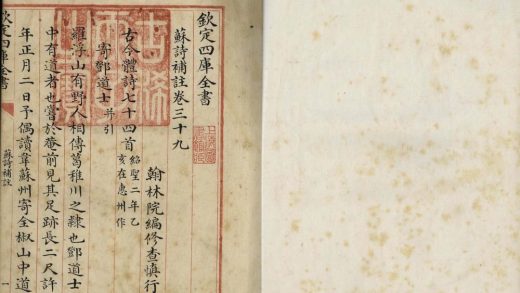 欽定四庫全書
蘇詩補註卷三十九
翰林院編修查慎行
古今體詩七十四首
紹聖二年乙
亥在惠州作
寄鄧道士
并引
羅浮山有野人相傳葛稚川之隸也鄧道士
中有道者也嘗於菴前見其足跡長二尺許
年正月二日予偶讀韋蘇州寄全椒山中道
欽定四庫全書
蘇詩補註
一